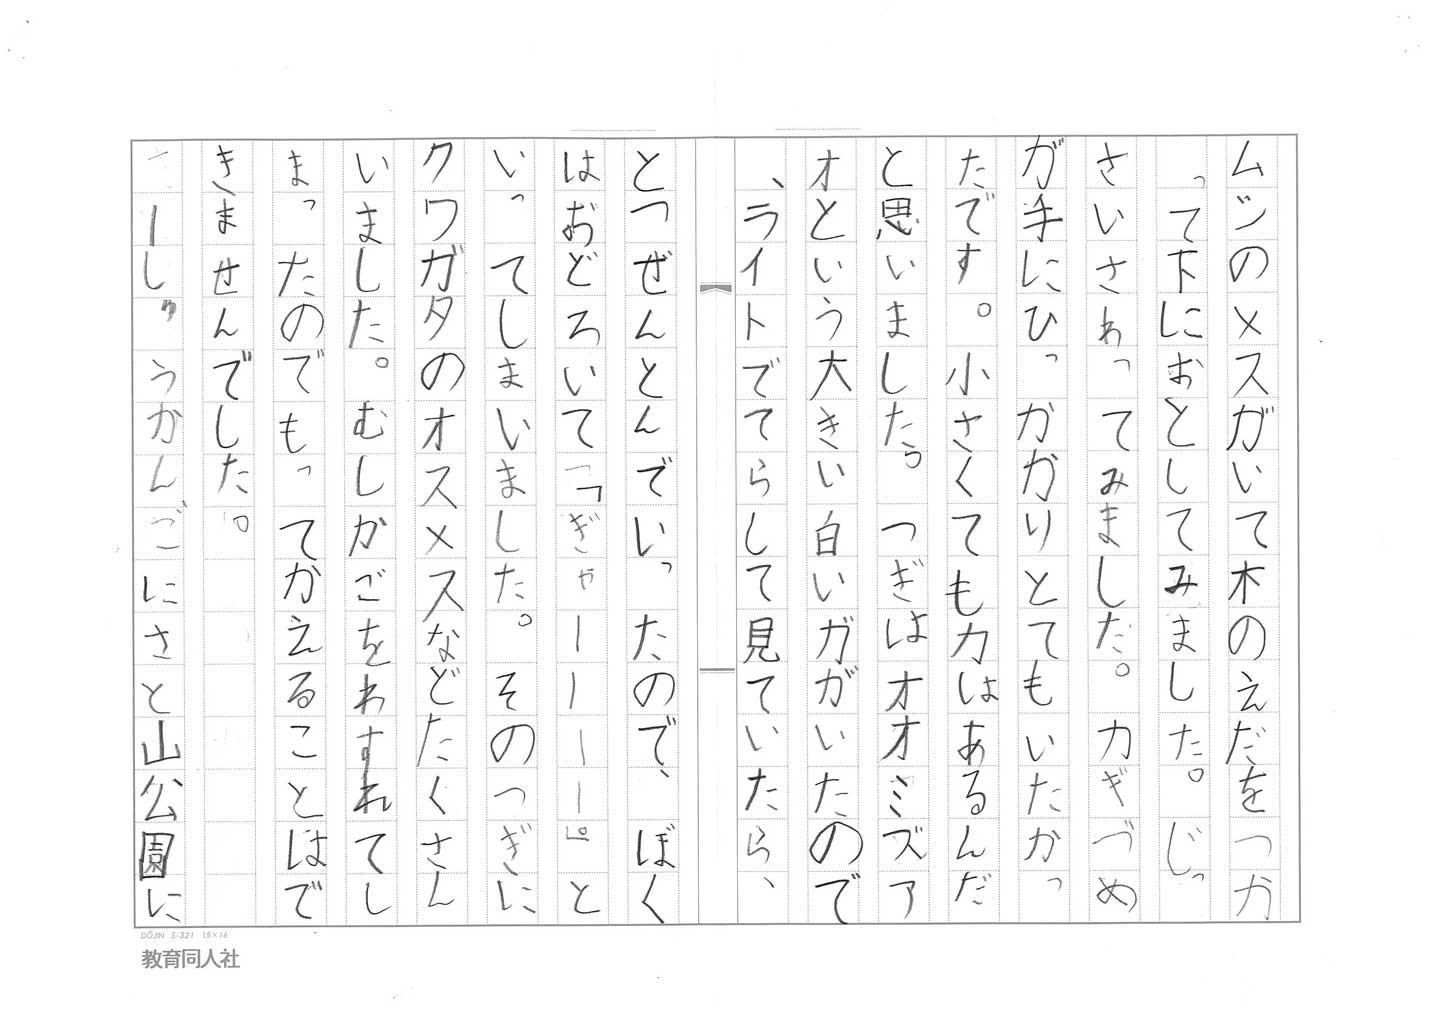 ムシのメスがいて木のえだをつか
って下におとしてみました。じっ
さいさわってみました。カギづめ
が手にひっかかりとてもいたかっ
たです。小さくても力はあるんだ
と思いました。つぎはオオミズア
オという大きい白いガがいたので
、ライトでてらして見ていたら、
とつぜんとんでいったので、ぼく
はおどろいて「ぎゃーーーー」と
いってしまいました。そのつぎに
クワガタのオスメスなどたくさん
いました。むしかごをわすれてし
まったのでもってかえることはで
きませんでした。
ーしゅうかんごにさと山公園に
DŌJIN S-321 15×16
教育同人社